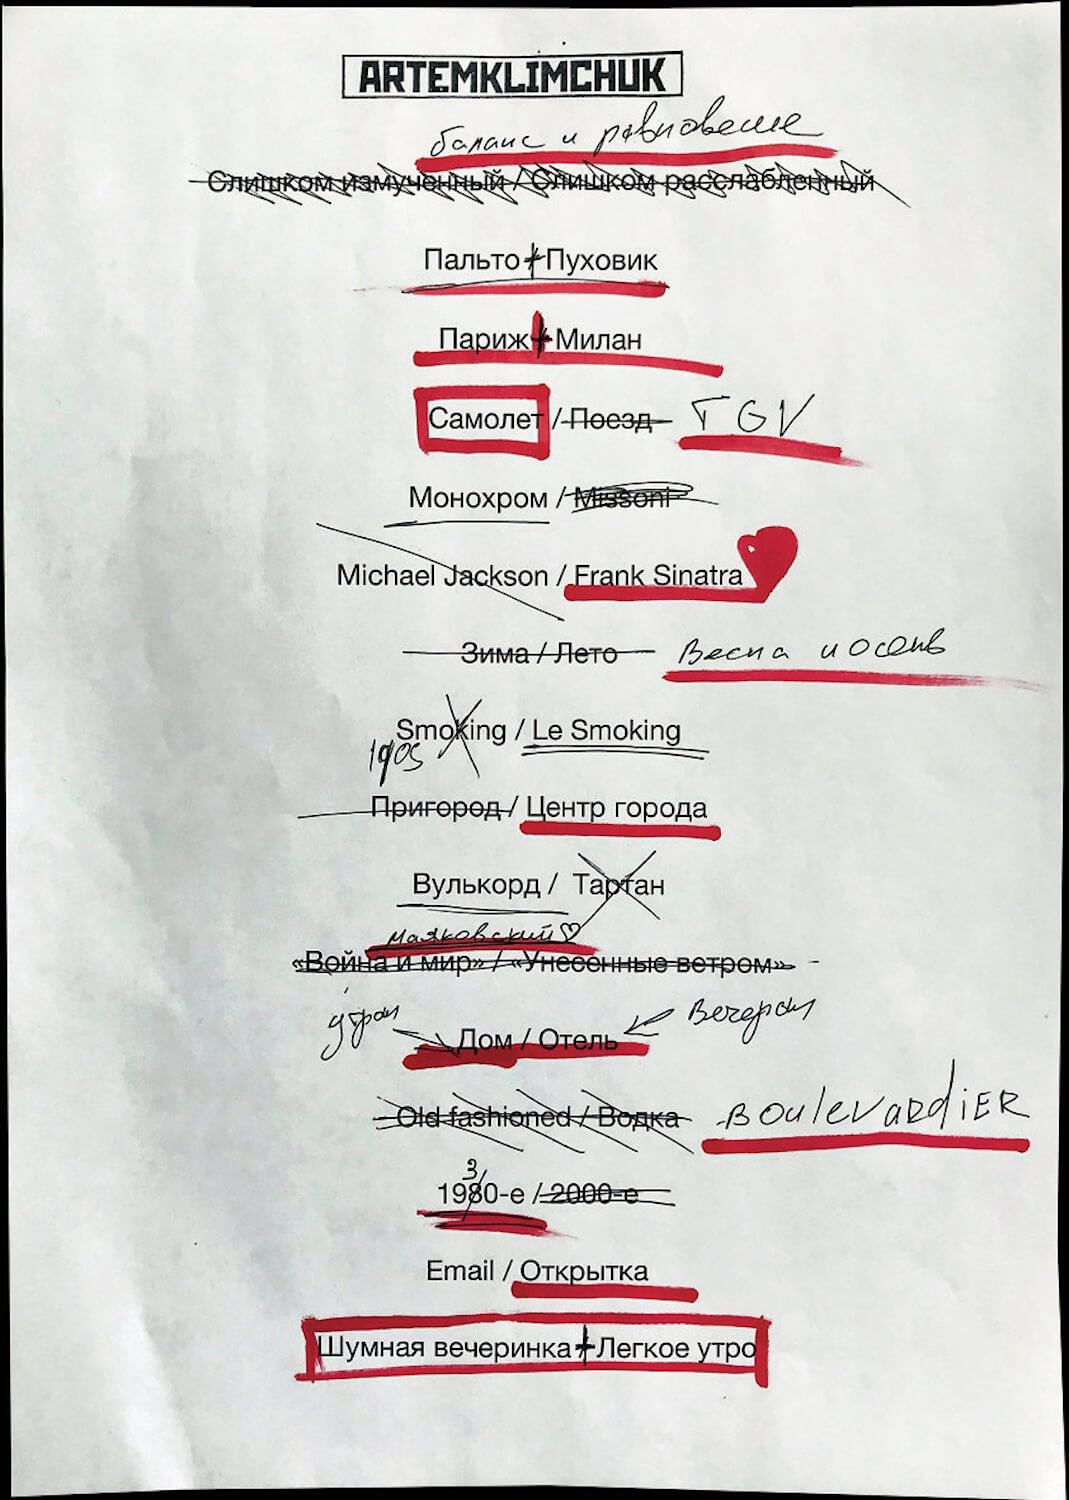 ARTEMKLIMCHUK
баланс и равновесие
Слишком измученный / Слишком расслабленный
Пальто + Пуховик
Париж + Милан
Самолет / Поезд TGV
Монохром / Missoni
Michael Jackson / Frank Sinatra
Зима / Лето Весна и осень
Smoking / Le Smoking
Пригород / Центр города
Вулькорд / Тартан
Маяковский ♡
«Война и мир» / «Унесенные ветром»
утром Вечером
Дом / Отель
Old-fashioned / Водка BOulEVARdiER
3
1980-е / 2000-е
Email / Открытка
Шумная вечеринка + Легкое утро